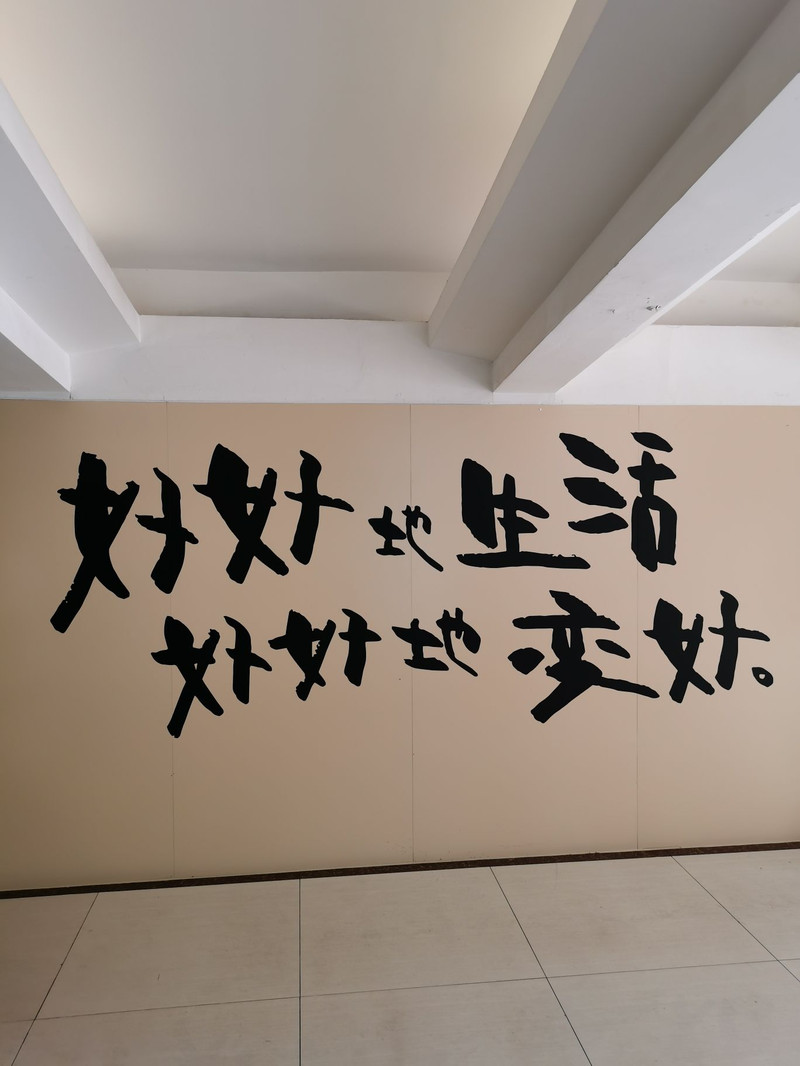 好好地生活
好好地变好。